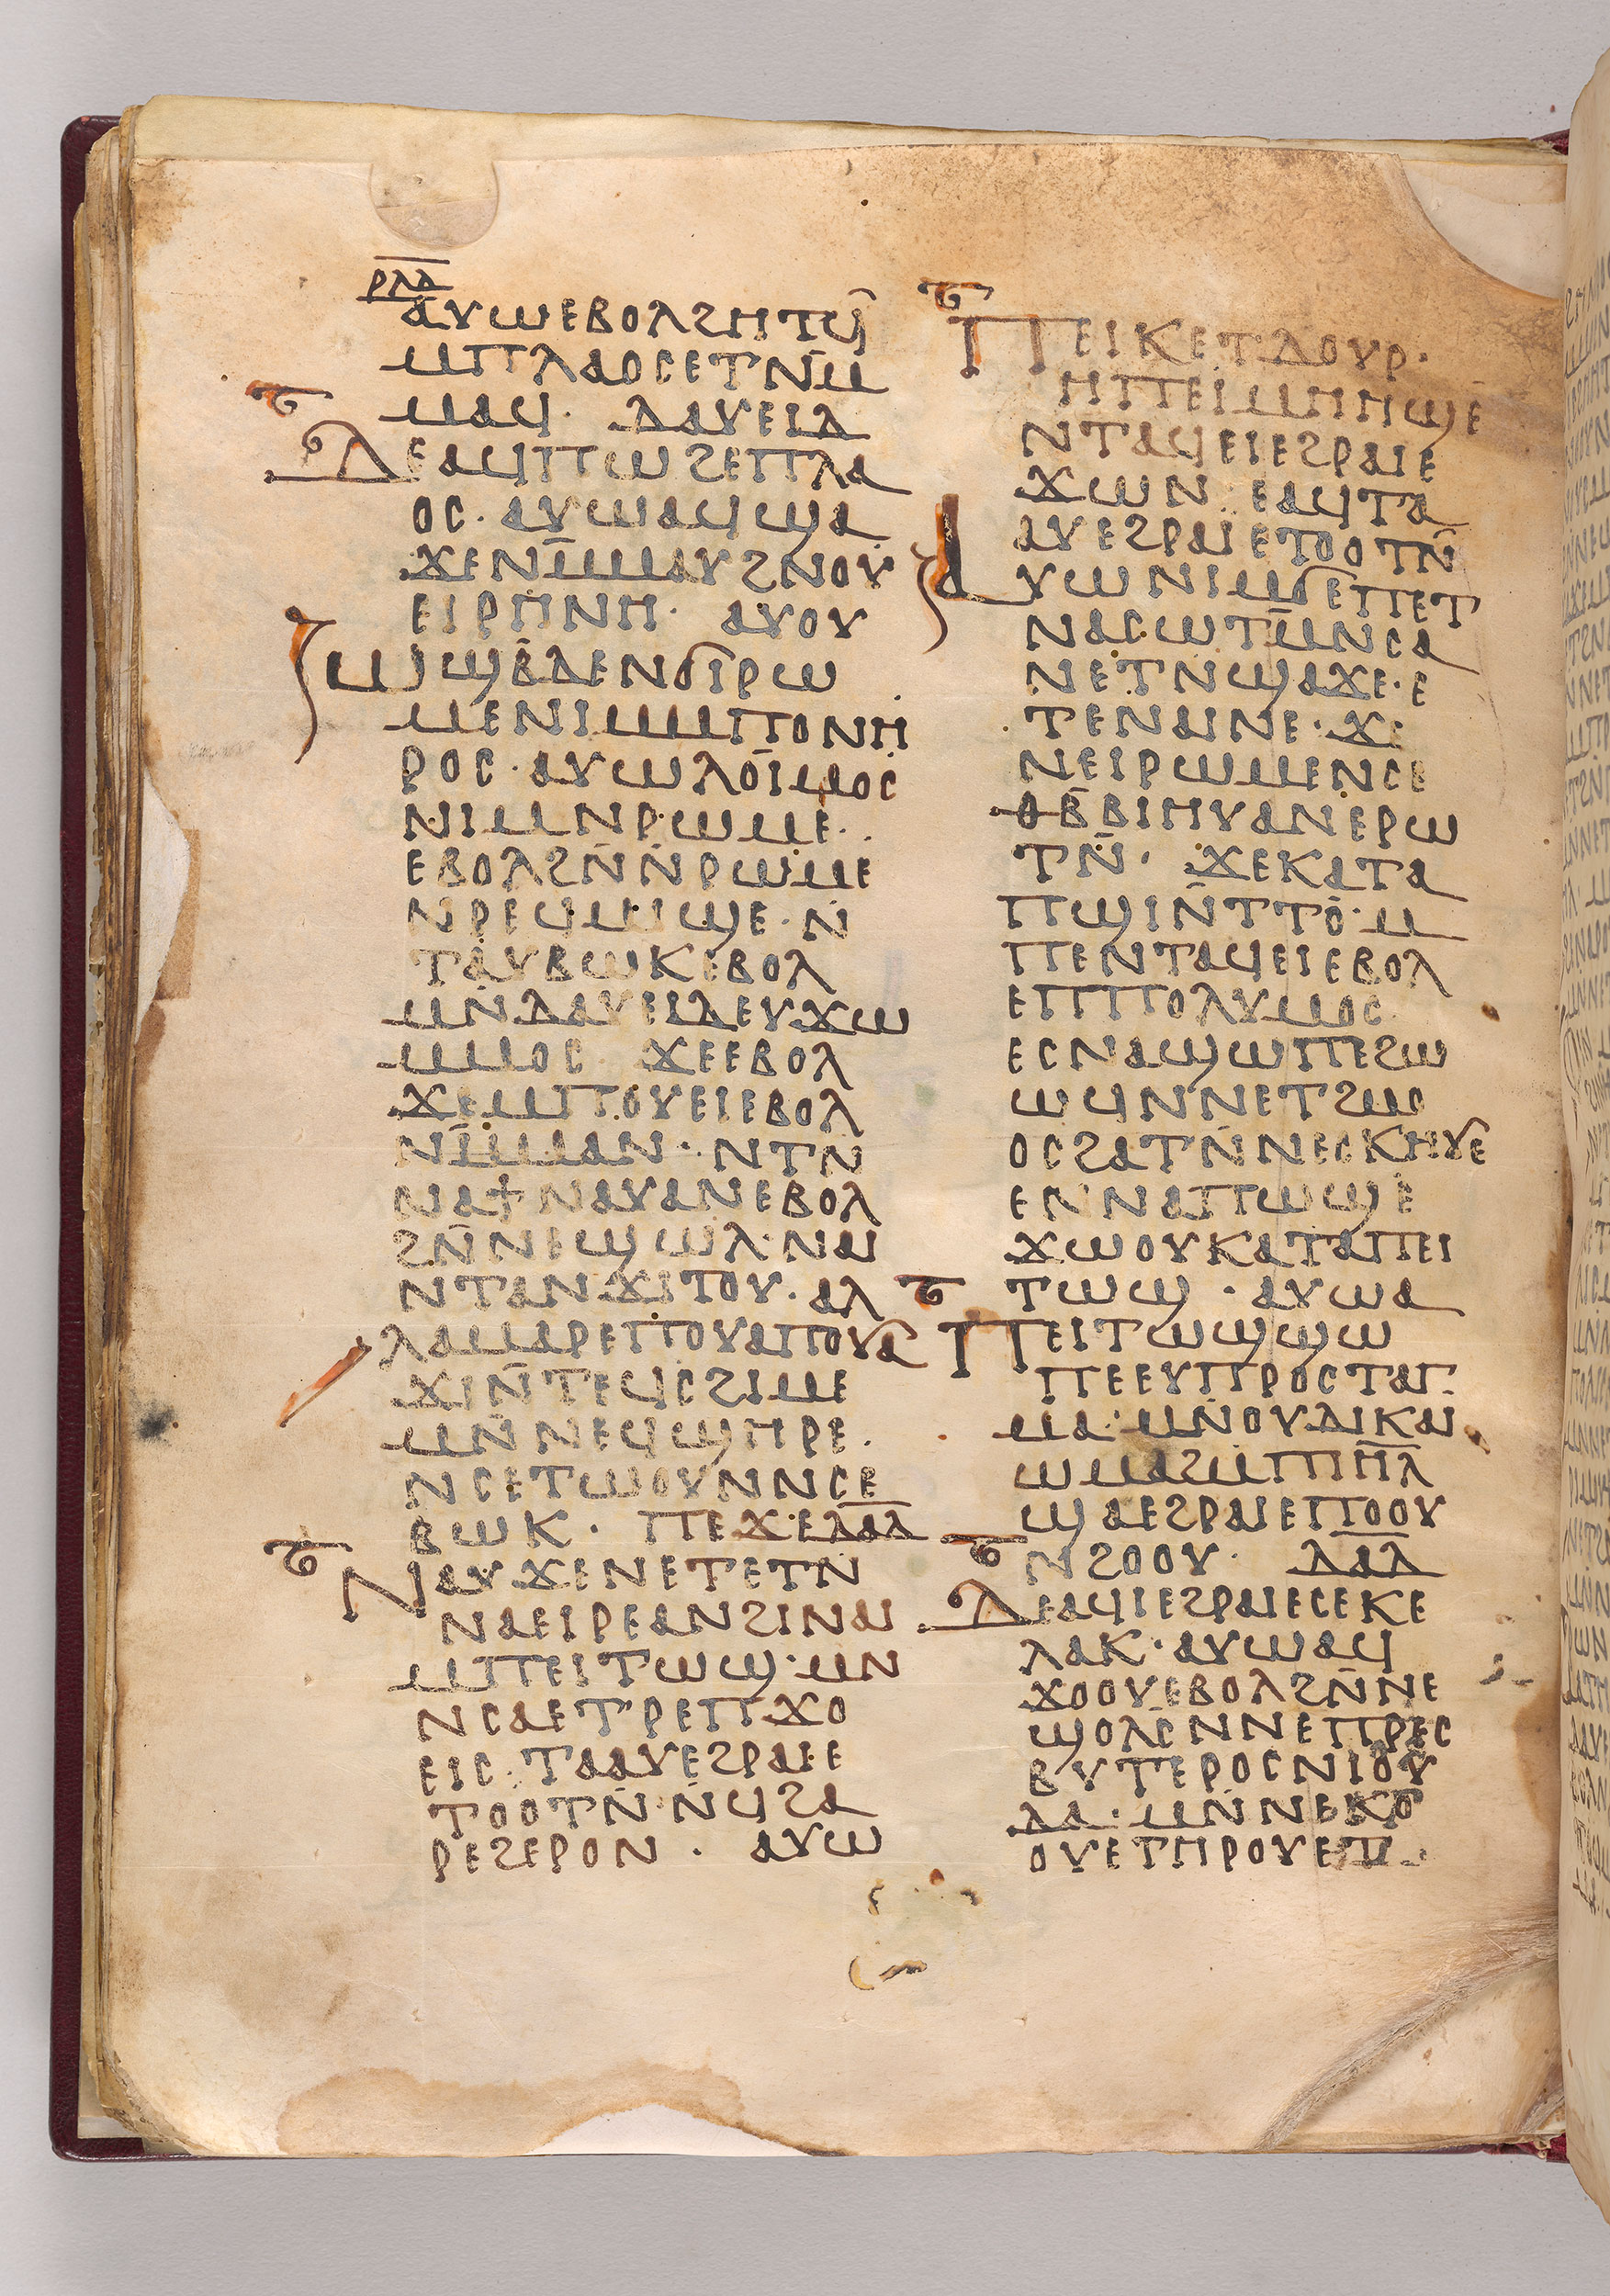 ⲣⲗⲇ
ⲁⲩⲱⲉⲃⲟⲗϩⲏⲧϥ̄
ⲙⲡⲗⲁⲟⲥⲉⲧⲛⲙ̄
ⲙⲁϥ· ⲇⲁⲩⲉⲓⲇ
ⲇⲉⲁϥⲡⲱϩⲉⲡⲗⲁ
ⲟⲥ· ⲁⲩⲱⲁϥϣⲁ
ϫⲉⲛⲙ̄ⲙⲁⲩϩⲛⲟⲩ
ⲉⲓⲣⲏⲛⲏ· ⲁⲩⲟⲩ
ⲱϣⲃ̄ⲇⲉⲛϭⲓⲣⲱ
ⲙⲉⲛⲓⲙⲙⲡⲟⲛⲏ
ⲣⲟⲥ· ⲁⲩⲱⲗⲟⲓⲙⲟⲥ
ⲛⲓⲙⲛⲣⲱⲙⲉ·
ⲉⲃⲟⲗϩⲛ̄ⲛ̄ⲣⲱⲙⲉ
ⲛⲣⲉϥⲙⲓϣⲉ· ⲛ̄
ⲧⲁⲩⲃⲱⲕⲉⲃⲟⲗ
ⲙⲛ̄ⲇⲁⲩⲉⲓⲇⲉⲩϫⲱ
ⲙⲙⲟⲥ ϫⲉⲉⲃⲟⲗ
ϫⲉⲙⲡⲟⲩⲉⲓⲉⲃⲟⲗ
ⲛⲙ̄ⲙⲁⲛ· ⲛⲧⲛ
ⲛⲁϯⲛⲁⲩⲁⲛⲉⲃⲟⲗ
ϩⲛ̄ⲛⲉϣⲱⲗ· ⲛⲁⲓ
ⲛⲧⲁⲛϫⲓⲧⲟⲩ· ⲁⲗ
ⲗⲁⲙⲁⲣⲉⲡⲟⲩⲁⲡⲟⲩⲁ
ϫⲓⲛ̄ⲧⲉϥⲥϩⲓⲙⲉ
ⲙⲛ̄ⲛⲉϥϣⲏⲣⲉ·
ⲛⲥⲉⲧⲱⲟⲩⲛⲛⲥⲉ
ⲃⲱⲕ· ⲡⲉϫⲉⲇⲁⲇ
ⲛⲁⲩϫⲉⲛⲉⲧⲉⲧⲛ
ⲛⲁⲉⲓⲣⲉⲁⲛϩⲓⲛⲁⲓ
ⲙⲡⲉⲓⲧⲱϣ· ⲙⲛ
ⲛⲥⲁⲉⲧⲣⲉⲡϫⲟ
ⲉⲓⲥ· ⲧⲁⲁⲩⲉϩⲣⲁⲓⲉ
ⲧⲟⲟⲧⲛ̄· ⲛ̄ϥϩⲁ
ⲣⲉϩⲉⲣⲟⲛ· ⲁⲩⲱ
ⲡⲉⲓⲕⲉⲧ·ⲇⲟⲩⲣ·
ⲏⲡⲉⲓⲙⲏⲏϣⲉ
ⲛⲧⲁϥⲉⲓⲉϩⲣⲁⲓⲉ
ϫⲱⲛ· ⲉⲁϥⲧⲁ
ⲁⲩⲉϩⲣⲁⲓⲉⲧⲟⲟⲧⲛ̄
ⲁⲩⲱⲛⲓⲙϭⲉⲡⲉⲧ
ⲛⲁⲥⲱⲧⲙ̄ⲛⲥⲁ
ⲛⲉⲧⲛϣⲁϫⲉ· ⲉ
ⲧⲉⲛⲁⲓⲛⲉ· ϫⲉ
ⲛⲉⲓⲣⲱⲙⲉⲛⲥⲉ
ⲑⲃ̄ⲃⲓⲏⲩⲁⲛⲉⲣⲱ
ⲧⲛ̄· ϫⲉⲕⲁⲧⲁ
ⲡϣⲓⲛ̄ⲧⲧⲟ· ⲙ
ⲡⲉⲛⲧⲁϥⲉⲓⲉⲃⲟⲗ
ⲉⲡⲡⲟⲗⲩⲙⲟⲥ
ⲉⲥⲛⲁϣⲱⲡⲉϩⲱ
ⲱϥⲛⲛⲉⲧϩⲙⲟ
ⲟⲥϩⲁⲧⲛ̄ⲛⲉⲥⲕⲏⲩⲉ
ⲉⲛⲛⲁⲡⲱϣⲉ
ϫⲱⲟⲩⲕⲁⲧⲁⲡⲉⲓ
ⲧⲱϣ· ⲁⲩⲱⲁ
ⲡⲉⲓⲧⲱϣϣⲱ
ⲡⲉⲉⲩⲡⲣⲟⲥⲧⲁⲅ
ⲙⲁ· ⲙⲛ̄ⲟⲩⲇⲓⲕⲁⲓ
ⲱⲙⲁϩⲙⲡⲓⲏ̄ⲗ
ϣⲁⲉϩⲣⲁⲓⲉⲡⲟⲟⲩ
ⲛϩⲟⲟⲩ· ⲇⲁⲇ
ⲇⲉⲁϥⲓⲉϩⲣⲁⲓⲉⲥⲉⲕⲉ
ⲗⲁⲕ· ⲁⲩⲱⲁϥ
ϫⲟⲟⲩⲉⲃⲟⲗϩⲛ̄ⲛⲉ
ϣⲟⲗⲥ̄ⲛⲛⲉⲡⲣⲉⲥ
ⲃⲩⲧⲉⲣⲟⲥⲛⲓⲟⲩ
ⲇⲁ· ⲙⲛ̄ⲛⲉⲕⲧⲟ
ⲟⲩⲉⲧⲏⲣⲟⲩⲉⲧ